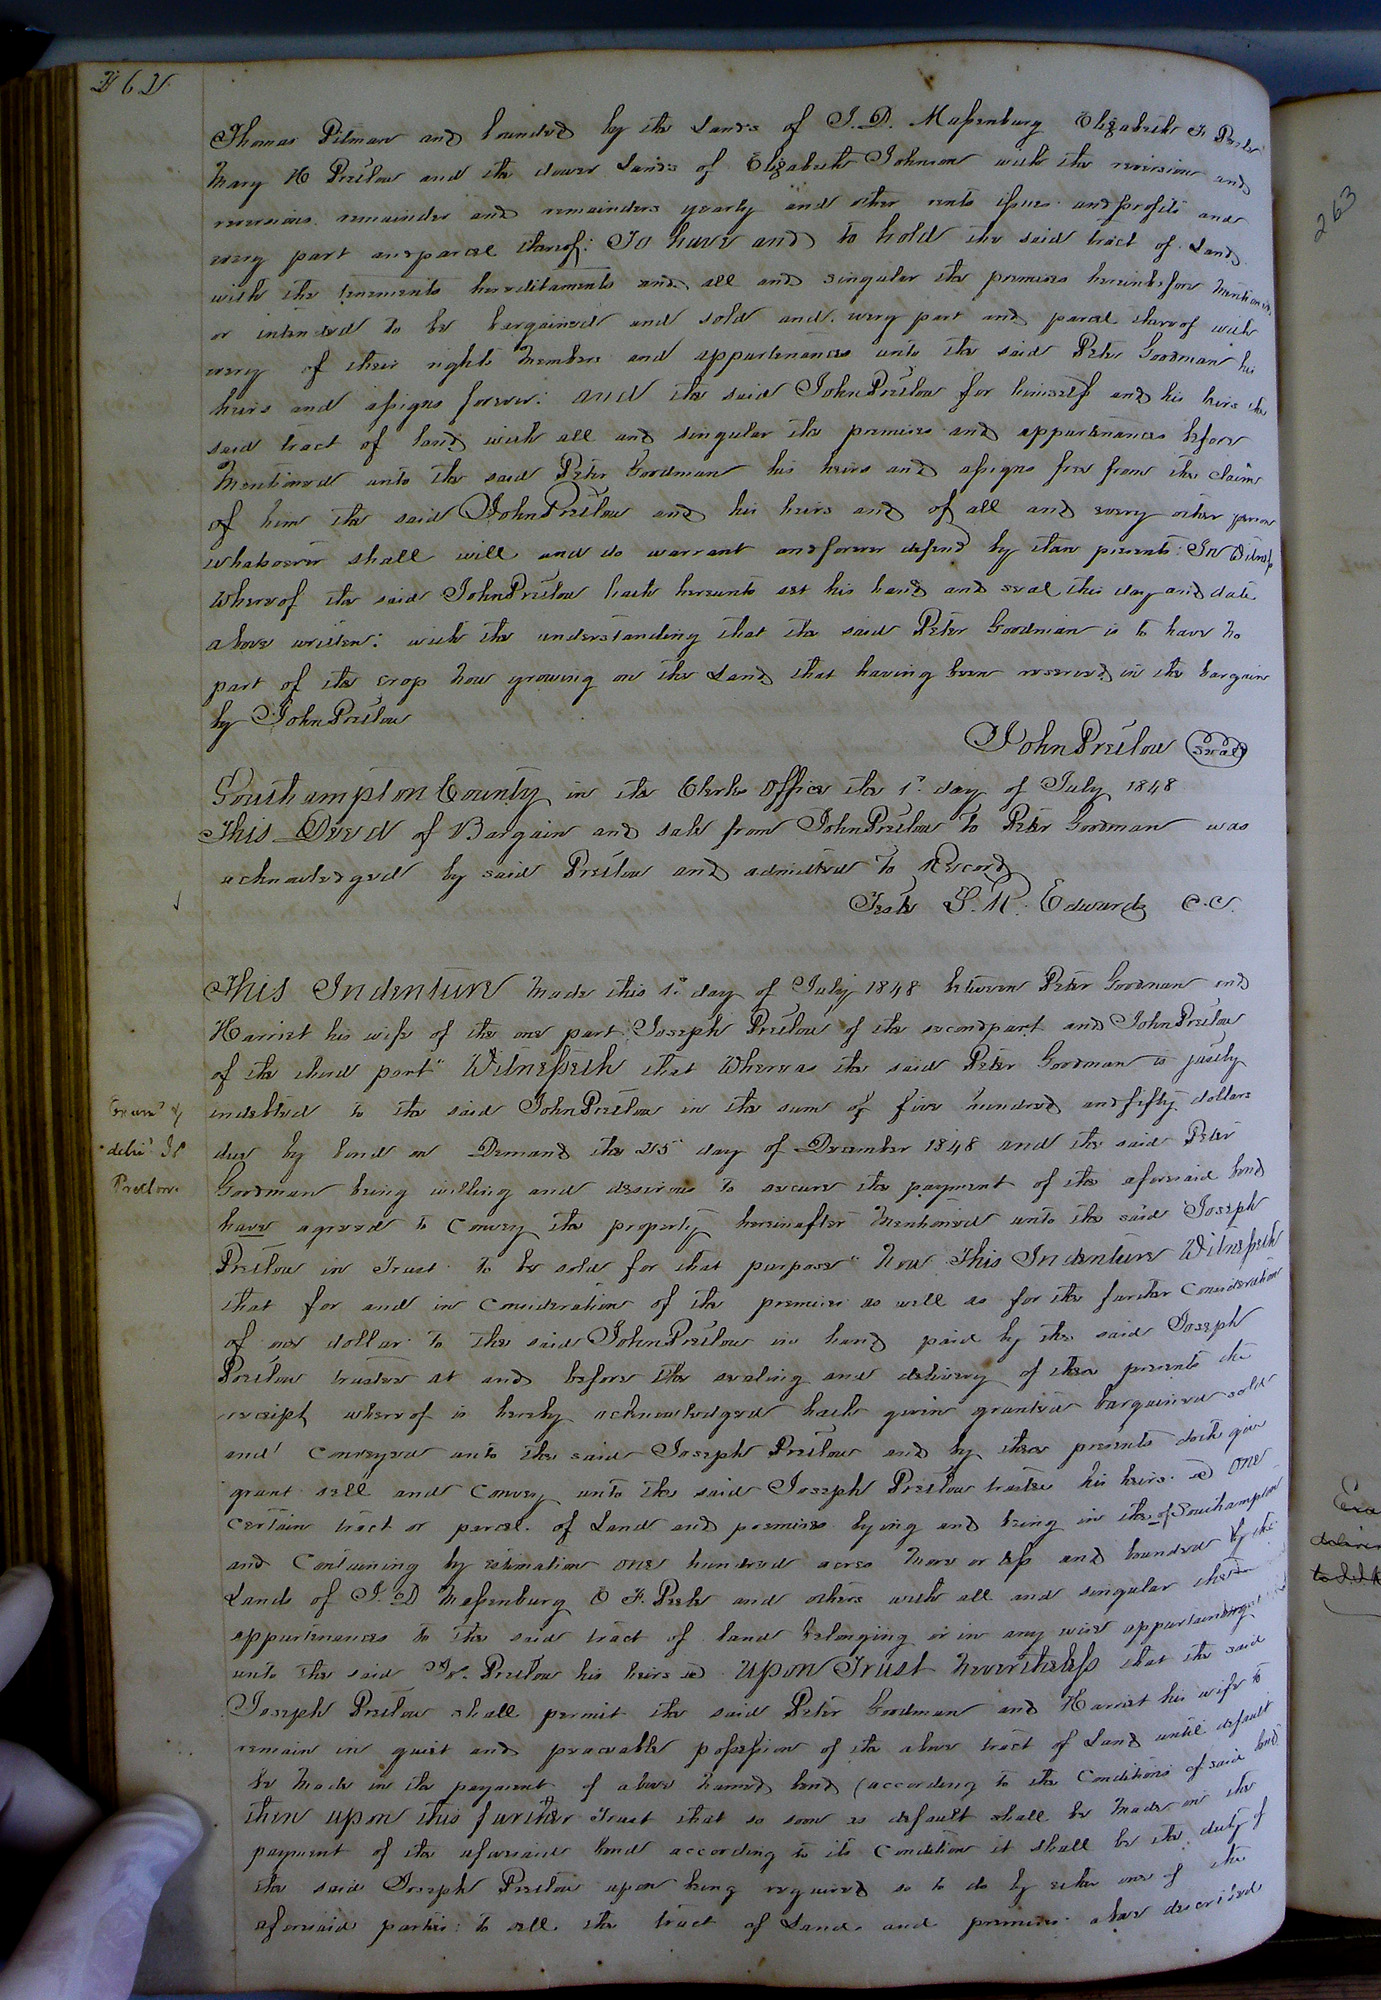 262
Thomas Pitman and bounded by the Lands of J. D. Massenburg Elizabeth F. Peete
Mary H Pretlow and the dower Lands of Elizabeth Johnson with the reversion and
reversions remainder and remainders yearly and other rents issues and profits and
every part and parcel thereof: To have and to hold the said tract of Land
with the tenements hereditaments and all and singular the premises hereinbefore mentioned
or intended to be bargained and sold and every part and parcel thereof with
every of their rights members and appurtenances unto the said Peter Goodman his
heirs and assigns forever: and the said John Pretlow for himself and his heirs the
said tract of land with all and singular the premises and appurtenances before
mentioned unto the said Peter Goodman his heirs and assigns free from the claim
of him the said John Pretlow and his heirs and of all and every other person
whatsoever shall will and do warrant and forever defend by these presents: In Witness
whereof the said John Pretlow hath hereunto set his hand and seal this day and date
above written: with the understanding that the said Peter Goodman is to have no
part of the crop now growing on the Land that having been reserved in the bargain
by John Pretlow
John Pretlow (Seal)
Southampton County in the Clerks Office the 1st day of July 1848
This Deed of Bargain and sale from John Pretlow to Peter Goodman was
acknowledged by said Pretlow and admitted to Record
Teste L. R. Edwards C.C.
This Indenture made this 1st day of July 1848 between Peter Goodman and
Harriet his wife of the one part Joseph Pretlow of the second part and John Pretlow
of the third part" Witnesseth that Whereas the said Peter Goodman is justly
indebted to the said John Pretlow in the sum of five hundred and fifty dollars
due by bond on Demand the 25th day of December 1848 and the said Peter
Goodman being willing and desirous to secure the payment of the aforesaid bond
have agreed to convey the property hereinafter mentioned unto the said Joseph
Pretlow in Trust to be sold for that purpose" Now This Indenture Witnesseth
that for and in consideration of the premises as well as for the further consideration
of one dollar to the said John Pretlow in hand paid by the said Joseph
Pretlow trustee at and before the sealing and delivery of these presents the
receipt whereof is hereby acknowledged hath given granted bargained sold
and conveyed unto the said Joseph Pretlow and by these presents doth give
grant sell and convey unto the said Joseph Pretlow trustee his heirs &c One
certain tract or parcel of Land and premises lying and being in the of Southampton
and containing by estimation one hundred acres more or less and bounded by the
Lands of J. D Massenburg E F. Peete and others with all and singular the
appurtenances to the said tract of land belonging or in any wise appertaining
unto the said Jos. Pretlow his heirs &c Upon Trust nevertheless that the said
Joseph Pretlow shall permit the said Peter Goodman and Harriet his wife to
remain in quiet and peaceable possession of the above tract of Land until default
be made in the payment of above named bond (according to the conditions of said bond
then upon this further Trust that so soon as default shall be made in the
payment of the aforesaid bond according to its condition it shall be the duty of
the said Joseph Pretlow upon being required so to do by either one of the
aforesaid parties to sell the tract of Land and premises above described
Exam'd &
deliv'd
Pretlow.
263